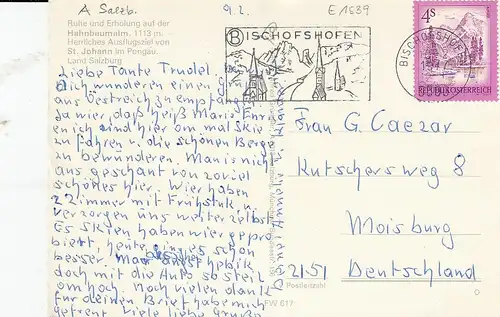 A Salzb.
9.2.
E 1639
Ruhe und Erholung auf der
Hahnbaumalm, 1113 m
Herrliches Ausflugsziel von
St. Johann im Pongau,
Land Salzburg
BISCHOFSHOFEN
BISCHOFSHOFEN
4S
REPUBLIK ÖSTERREICH
Liebe Tante Trudel.
Dich wunderen einen Gruß
aus Oestreich zu empfangen
Ja wir, daß heiß Mario Enri
en ich sind hier om mal skie
zu fahren u. die schönen Berge
zu bewünderen. Man is nicht
aus geschant von zoviel
schönes hier. Wier haben
2 Zimmer mit Frühstuk u.
verzorgen uns weiter zelbst
Es skien haben wier gepro
biert, heute ging es schon
besser. Man angst hab ik
doch mit die Auto so steil
om hoch. Noch vielen dank
für deinen Brief habe mich
gefreut. Viele liebe Grüße
Frau G. Caezar
Kutschersweg 8
Moisburg
2151
Deutschland
Postleitzahl
FW 617